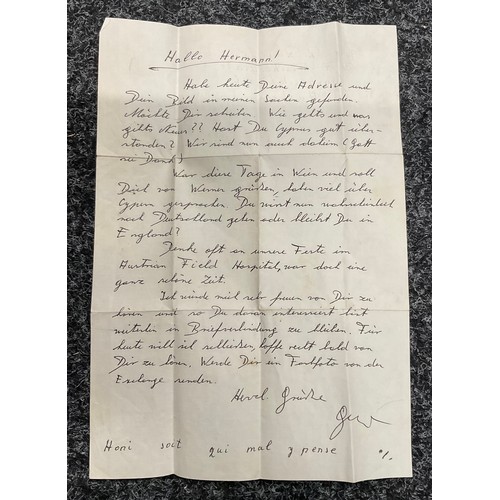 Hallo Hermann!
Habe heute Deine Adresse und
Dein Bild in meinen Sachen gefunden.
Möchte Dir schreiben. Wie gehts und was
gibts Neues?? Hast Du Cypres gut über-
standen? Wir sind nun auch daheim (Gott
sei Dank!)
War diese Tage in Wien und soll
Dich von Werner grüßen, haben viel über
Cypern gesprochen. Du wirst nun wahrscheinlich
nach Deutschland gehen oder bleibst Du in
England?
Denke oft an unsere Feste im
Austrian Field Hospital, war doch eine
ganz schöne Zeit.
Ich würde mich sehr freuen von Dir zu
hören und so Du daran interessiert bist
weiterhin in Briefverbindung zu bleiben. Für
heute will ich schließen, hoffe recht bald von
Dir zu hören. Werde Dir ein Farbfoto von der
senden.
Herzl Grüße
Honi soit qui mal y pense
%.